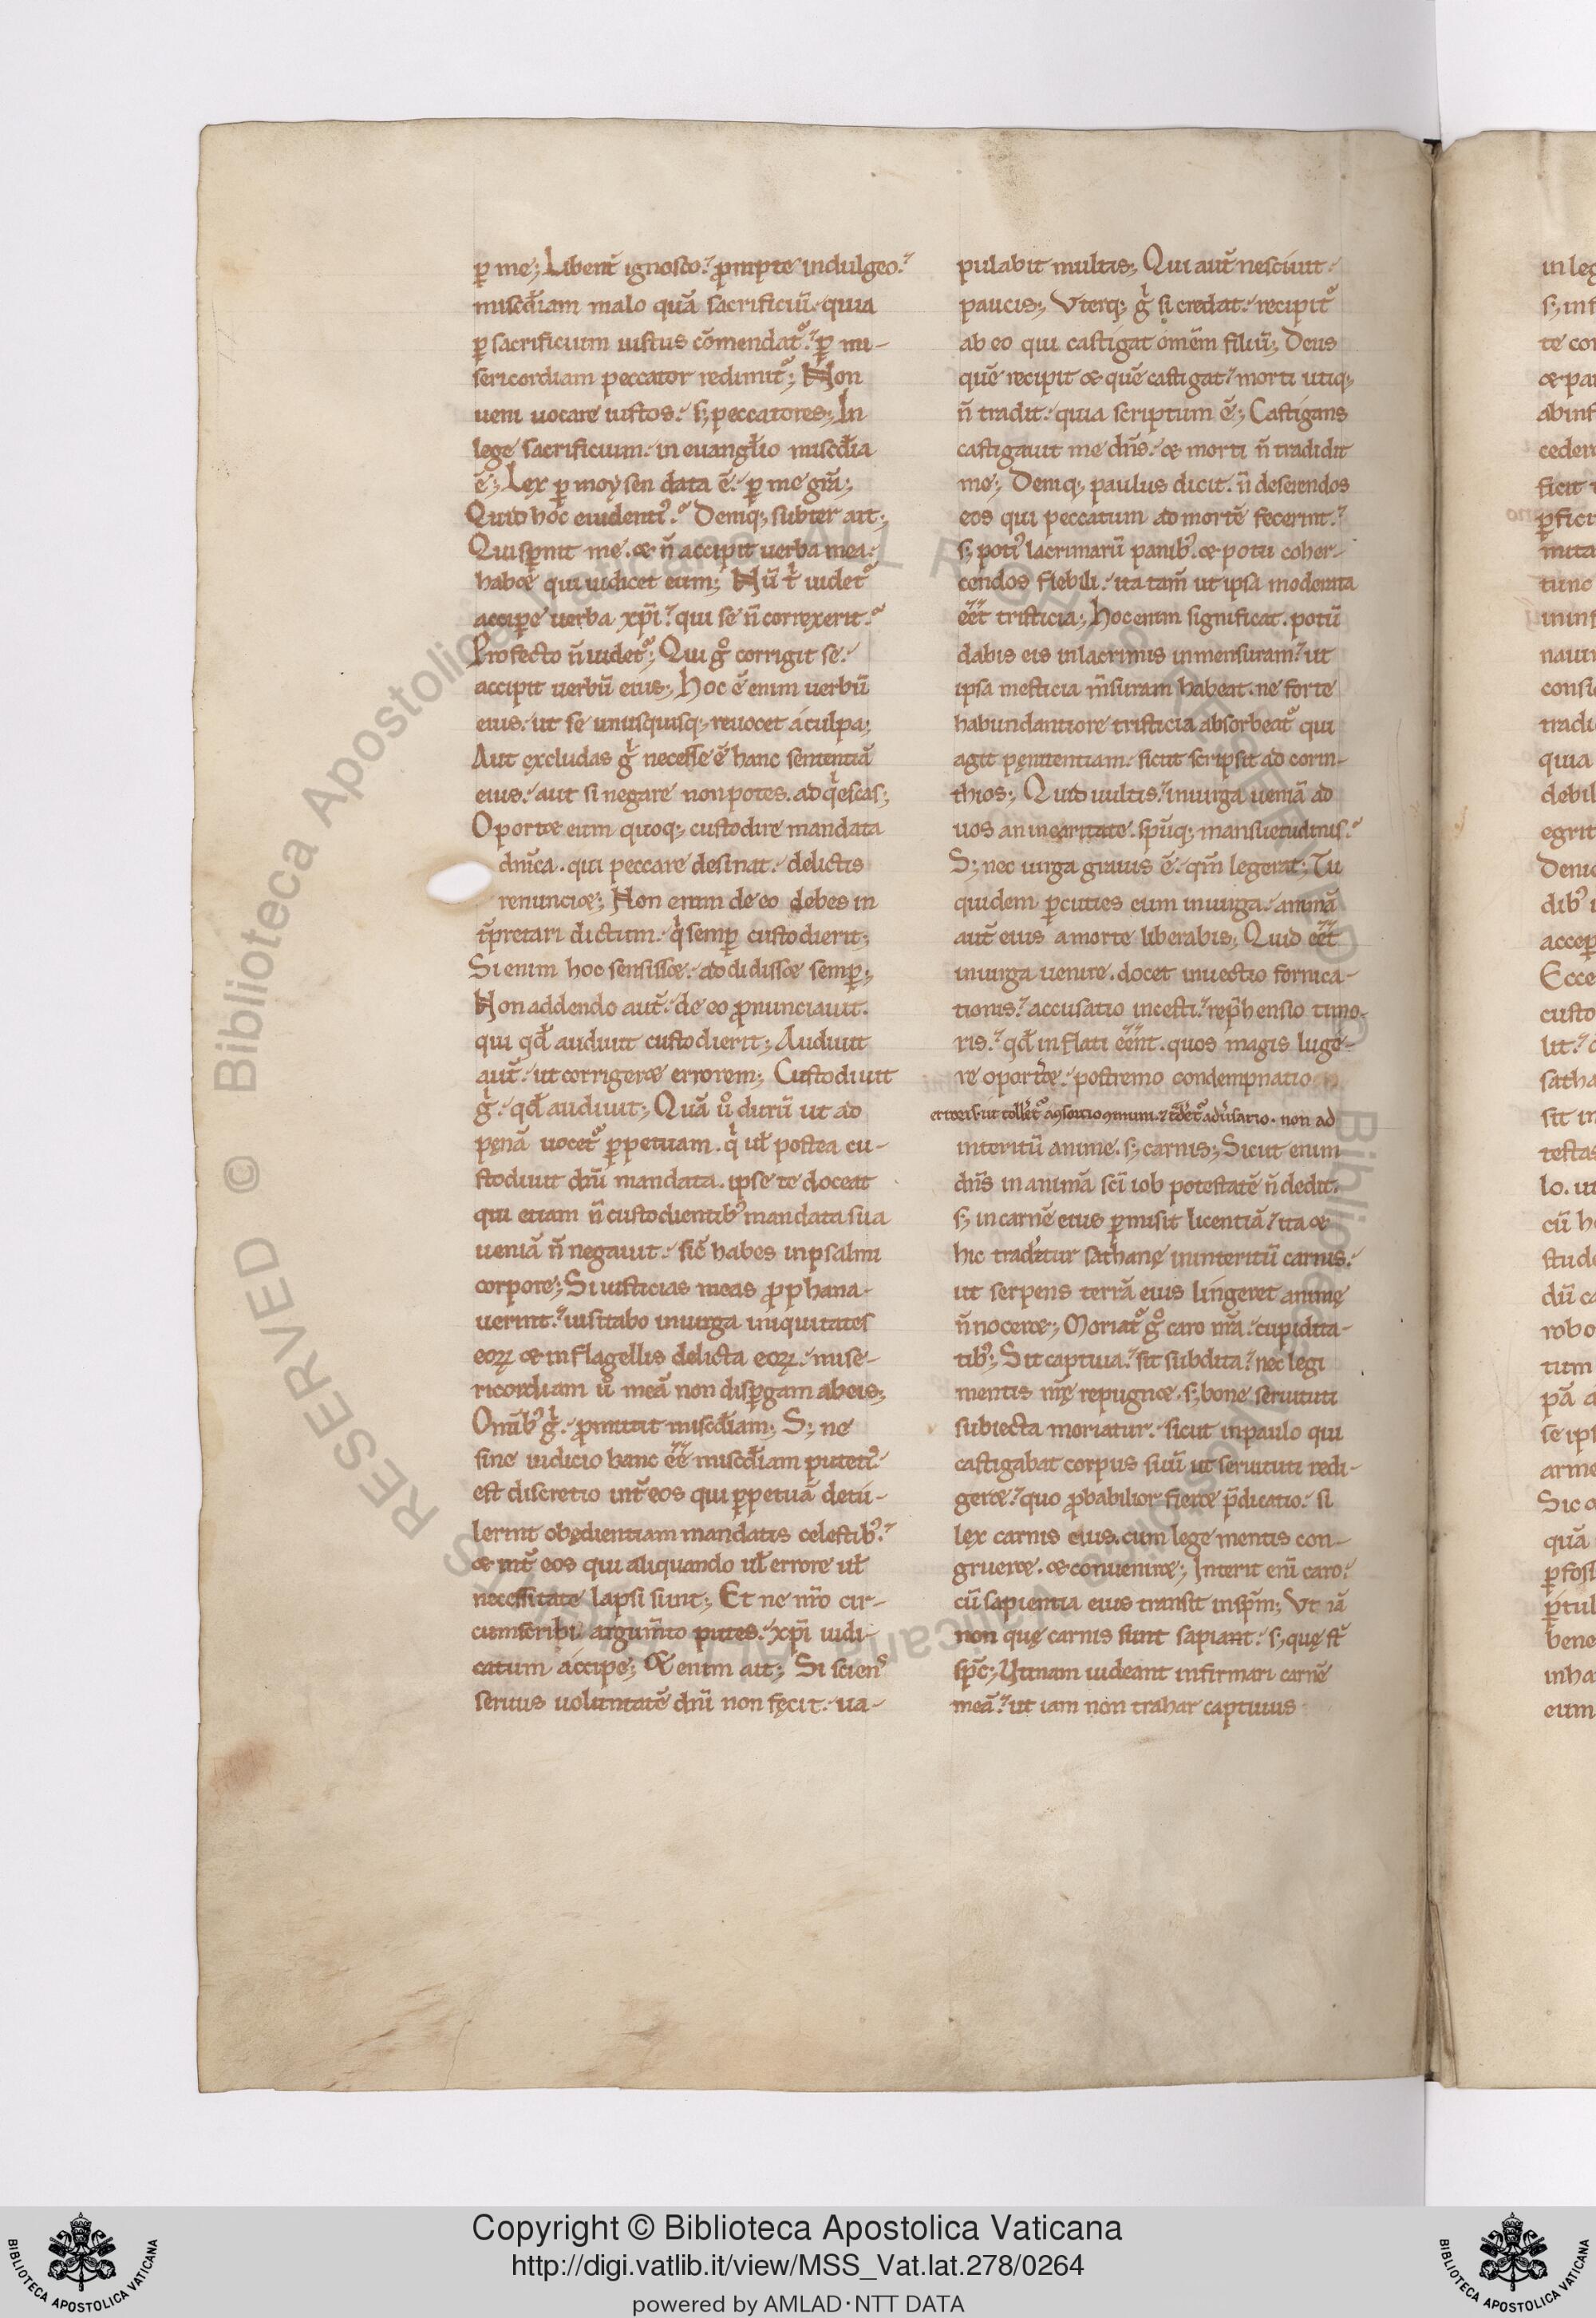 ꝑ me; Libent̄ ignosco. ꝓmpte indulgeo.
misc̄diam malo quā sacrificiū. quia
ꝑ sacrificium iustus cōmendat᷑. ꝑ mi-
sericordiam peccator redimit᷑; Non
ueni uocare iustos. s; peccatores; In
lege sacrificium. in euangl̄io misc̄dia
ē; Lex ꝑ moysen data ē. ꝑ me gr̄a;
Quid hoc euidenti᷒. Demq; subter ait;
Qui spnit me. & n̄ accipit uerba mea.
hab& qui iudicet eum; Nū t᷑ uidet᷑
accipe uerba xp̄i. qui se n̄ correxerit.
Profecto n̄ uidet᷑; Qui gͦ corrigit se.
accipit uerbū eius; Hoc ē enim uerbū
eius. ut se unusquisq; reuocet a culpa;
Aut excludas gͥ necesse ē hanc sententiā
eius. aut si negare non potes. adqͥescas;
Oport& eum quoq; custodire mandata
dn̄ica. qui peccare desinat. delictis
renunci&; Non enim de eo debes in
t̄pretari dictum. qͥ semꝑ custodierit;
Si enim hoc sensiss&. addidiss& semꝑ;
Non addendo aut̄. de eo ꝓnunciauit.
qui qd̄ audiuit custodierit; Audiuit
aut̄. ut corriger& errorem; Custodiuit
gͥ. qd̄ audiuit; Quā uͦ durū ut ad
pęnā uocet᷑ ꝑpetuam. qͥ ul̄ postea cu-
stodiuit dn̄i mandata. ipse te doceat
qui etiam n̄ custodientib᷒ mandata sua
ueniā n̄ negauit. sic̄ habes in psalmi
corpore; Si iusticias meas ꝓphana-
uerint. uisitabo in uirga iniquitates
eoꝝ & in flagellis delicta eoꝝ. mise-
ricordiam uͦ meā non dispgam ab eis;
Omīb᷒ gͥ. ꝓmittit misc̄diam; S; ne
sine iudicio hanc ēē misc̄diam putet᷑.
est discretio int̄ eos qui ꝑpetuā detu-
lerint obędientiam mandatis celestib᷒.
& int̄ eos qui aliquando ul̄ errore ul̄
necessitate lapsi sunt; Et ne nr̄o cir-
cumscribi argum̄to putes. xp̄i iudi-
catum accipe; & enim ait; Si scien᷒
seruus uoluntatē dn̄i non fęcit. ua-
pulabit multis; Qui aut̄ nesciuit.
paucis; Vterq; gͥ si credat. recipit᷑
ab eo qui castigat omēm filiū; Deus
quē recipit & quē castigat. morti utiq;
n̄ tradit. quia scriptum ē; Castigans
castigauit me dn̄s. & morti n̄ tradidit
me; Deniq; paulus dicit. n̄ deserendos
eos qui peccatum ad mortē fecerint.
s; poti᷒ lacrimarū panib᷒. & potu coher-
cendos flebili. ita tam̄ ut ipsa moderata
ēēt tristicia; Hoc enim significat. potū
dabis eis in lacrimis in mensuram. ut
ipsa mesticia m̄suram habeat. ne forte
habundantiore tristicia absorbeat᷑ qui
agit pęnitentiam. sicut scripsit ad corin-
thios; Quid uultis. in uirga ueniā ad
uos an in caritate. sp̄uq; mansuetudinis.
S; nec uirga grauis ē. qm̄ legerat; Tu
quidem ꝑcuties eum in uirga. animā
aut̄ eius a morte liberabis; Quid ēēt
in uirga uenire. docet inuectio fornica-
tionis. accusatio incesti. rep̄hensio timo-
ris. qd̄ inflati ēēnt. quos magis luge-
re oport&. postremo condempnatio
interitū anime. s; carnis; Sicut enim
dn̄s in animā sc̄i iob potestatē n̄ dedit.
s; in carnē eius ꝑmisit licentiā. ita &
hic traditur sathanę in interitū carnis.
ut serpens terrā eius lingeret animę
n̄ nocer&; Moriat᷑ gͦ caro nr̄a. cupidita-
tib᷒; Sit captiua. sit subdita. nec legi
mentis nr̄ę repugn&. s; bone seruituti
subiecta moriatur. sicut in paulo qui
castigabat corpus suū ut seruituti redi-
ger&. quo ꝓbabilior fier& p̄dicatio. si
lęx carnis eius. cum lege mentis con-
gruer&. & conuenir&; Interit eni̅ caro.
cū sapientia eius transit in sp̄m; Vt iā
non quę carnis sunt sapiant. s; quę st̄
sp̄c; Utinam uideant infirmari carnē
meā. ut iam non trahar captiuus
in leg
s; inf
te co
& pa
ab inf
ficit
ꝑfici
mita
tunc
naui
consi
tradi
quia
debil
egrit
dib᷒
accep
Ecce
custo
sath
sit in
testas
cū h
stude
robo
tum
pā a
se ips
arme
Sic
quā
ꝑfoss
bene
inha
eum
Copyright © Biblioteca Apostolica Vaticana
http://digi.vatlib.it/view/MSS_Vat.lat.278/0264
powered by AMLAD·NTT DATA
BIBLIOTECA APOSTOLICA VATICANA
BIBLIOTECA APOSTOLICA VATICANA